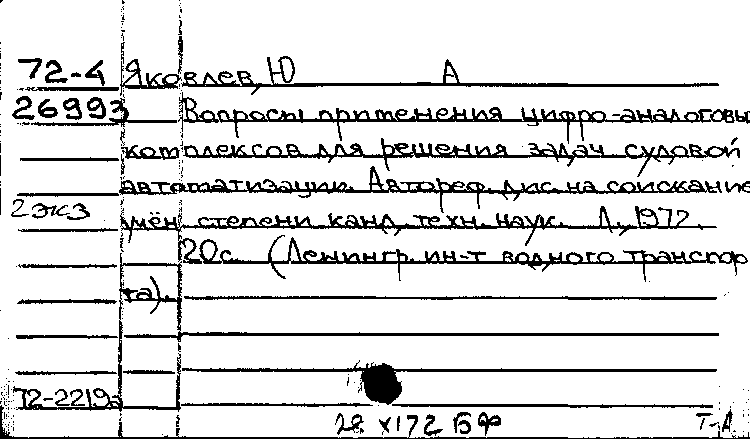 72-4 Яковлев, Ю А
26993 Вопросы применения цифро-аналоговы
комплексов для решения задач судовой
автоматизации. Автореф. дис. на соискание
2 экз учён. степени канд. техн. наук. Л., 1972.
20с. (Ленингр. ин-т водного транспор
та).
72-2219а
28 XI 72 БФ Т-Д